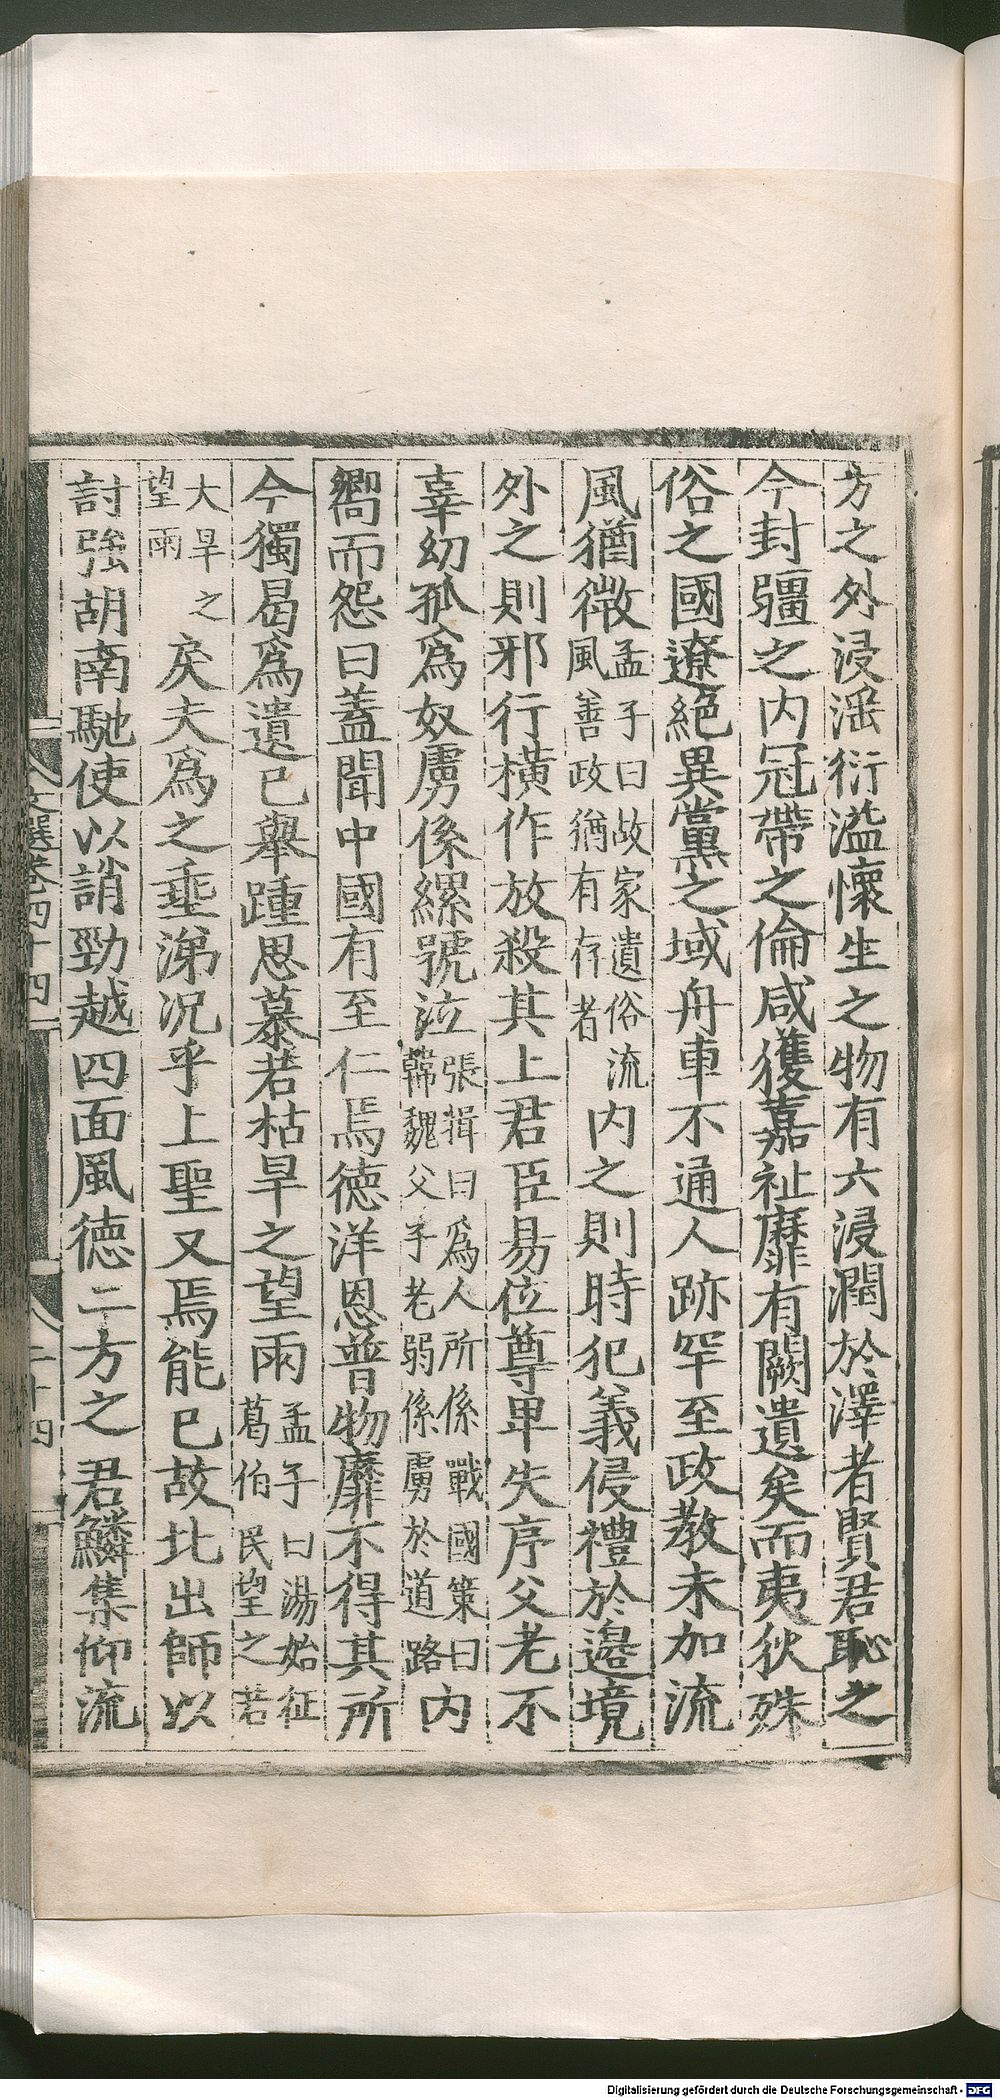 方之外浸滛衍溢懷生之物有不浸潤於澤者賢君恥之
今封疆之內冠帶之倫咸獲嘉祉靡有闕遺矣而夷狄殊
俗之國遼絕異黨之域舟車不通人跡罕至政教未加流
風猶微孟子曰故家遺俗流風善政猶有存者內之則時犯義侵禮於邉境
外之則邪行橫作放殺其上君臣易位尊卑失序父老不
辜幼孤為奴虜係縲號泣張揖曰為人所係戰國策曰韓魏父子老弱係虜於道路內
嚮而怨曰蓋聞中國有至仁焉德洋恩普物靡不得其所
今獨曷為遺已舉踵思慕若枯旱之望雨孟子曰湯始征葛伯民望之若
大旱之望雨戾夫為之垂涕况乎上聖又焉能已故北出師以
討強胡南馳使以誚勁越四面風德二方之君鱗集仰流
文選卷四十四
二十四
Digitalisierung gefördert durch die Deutsche Forschungsgemeinschaft - DFG